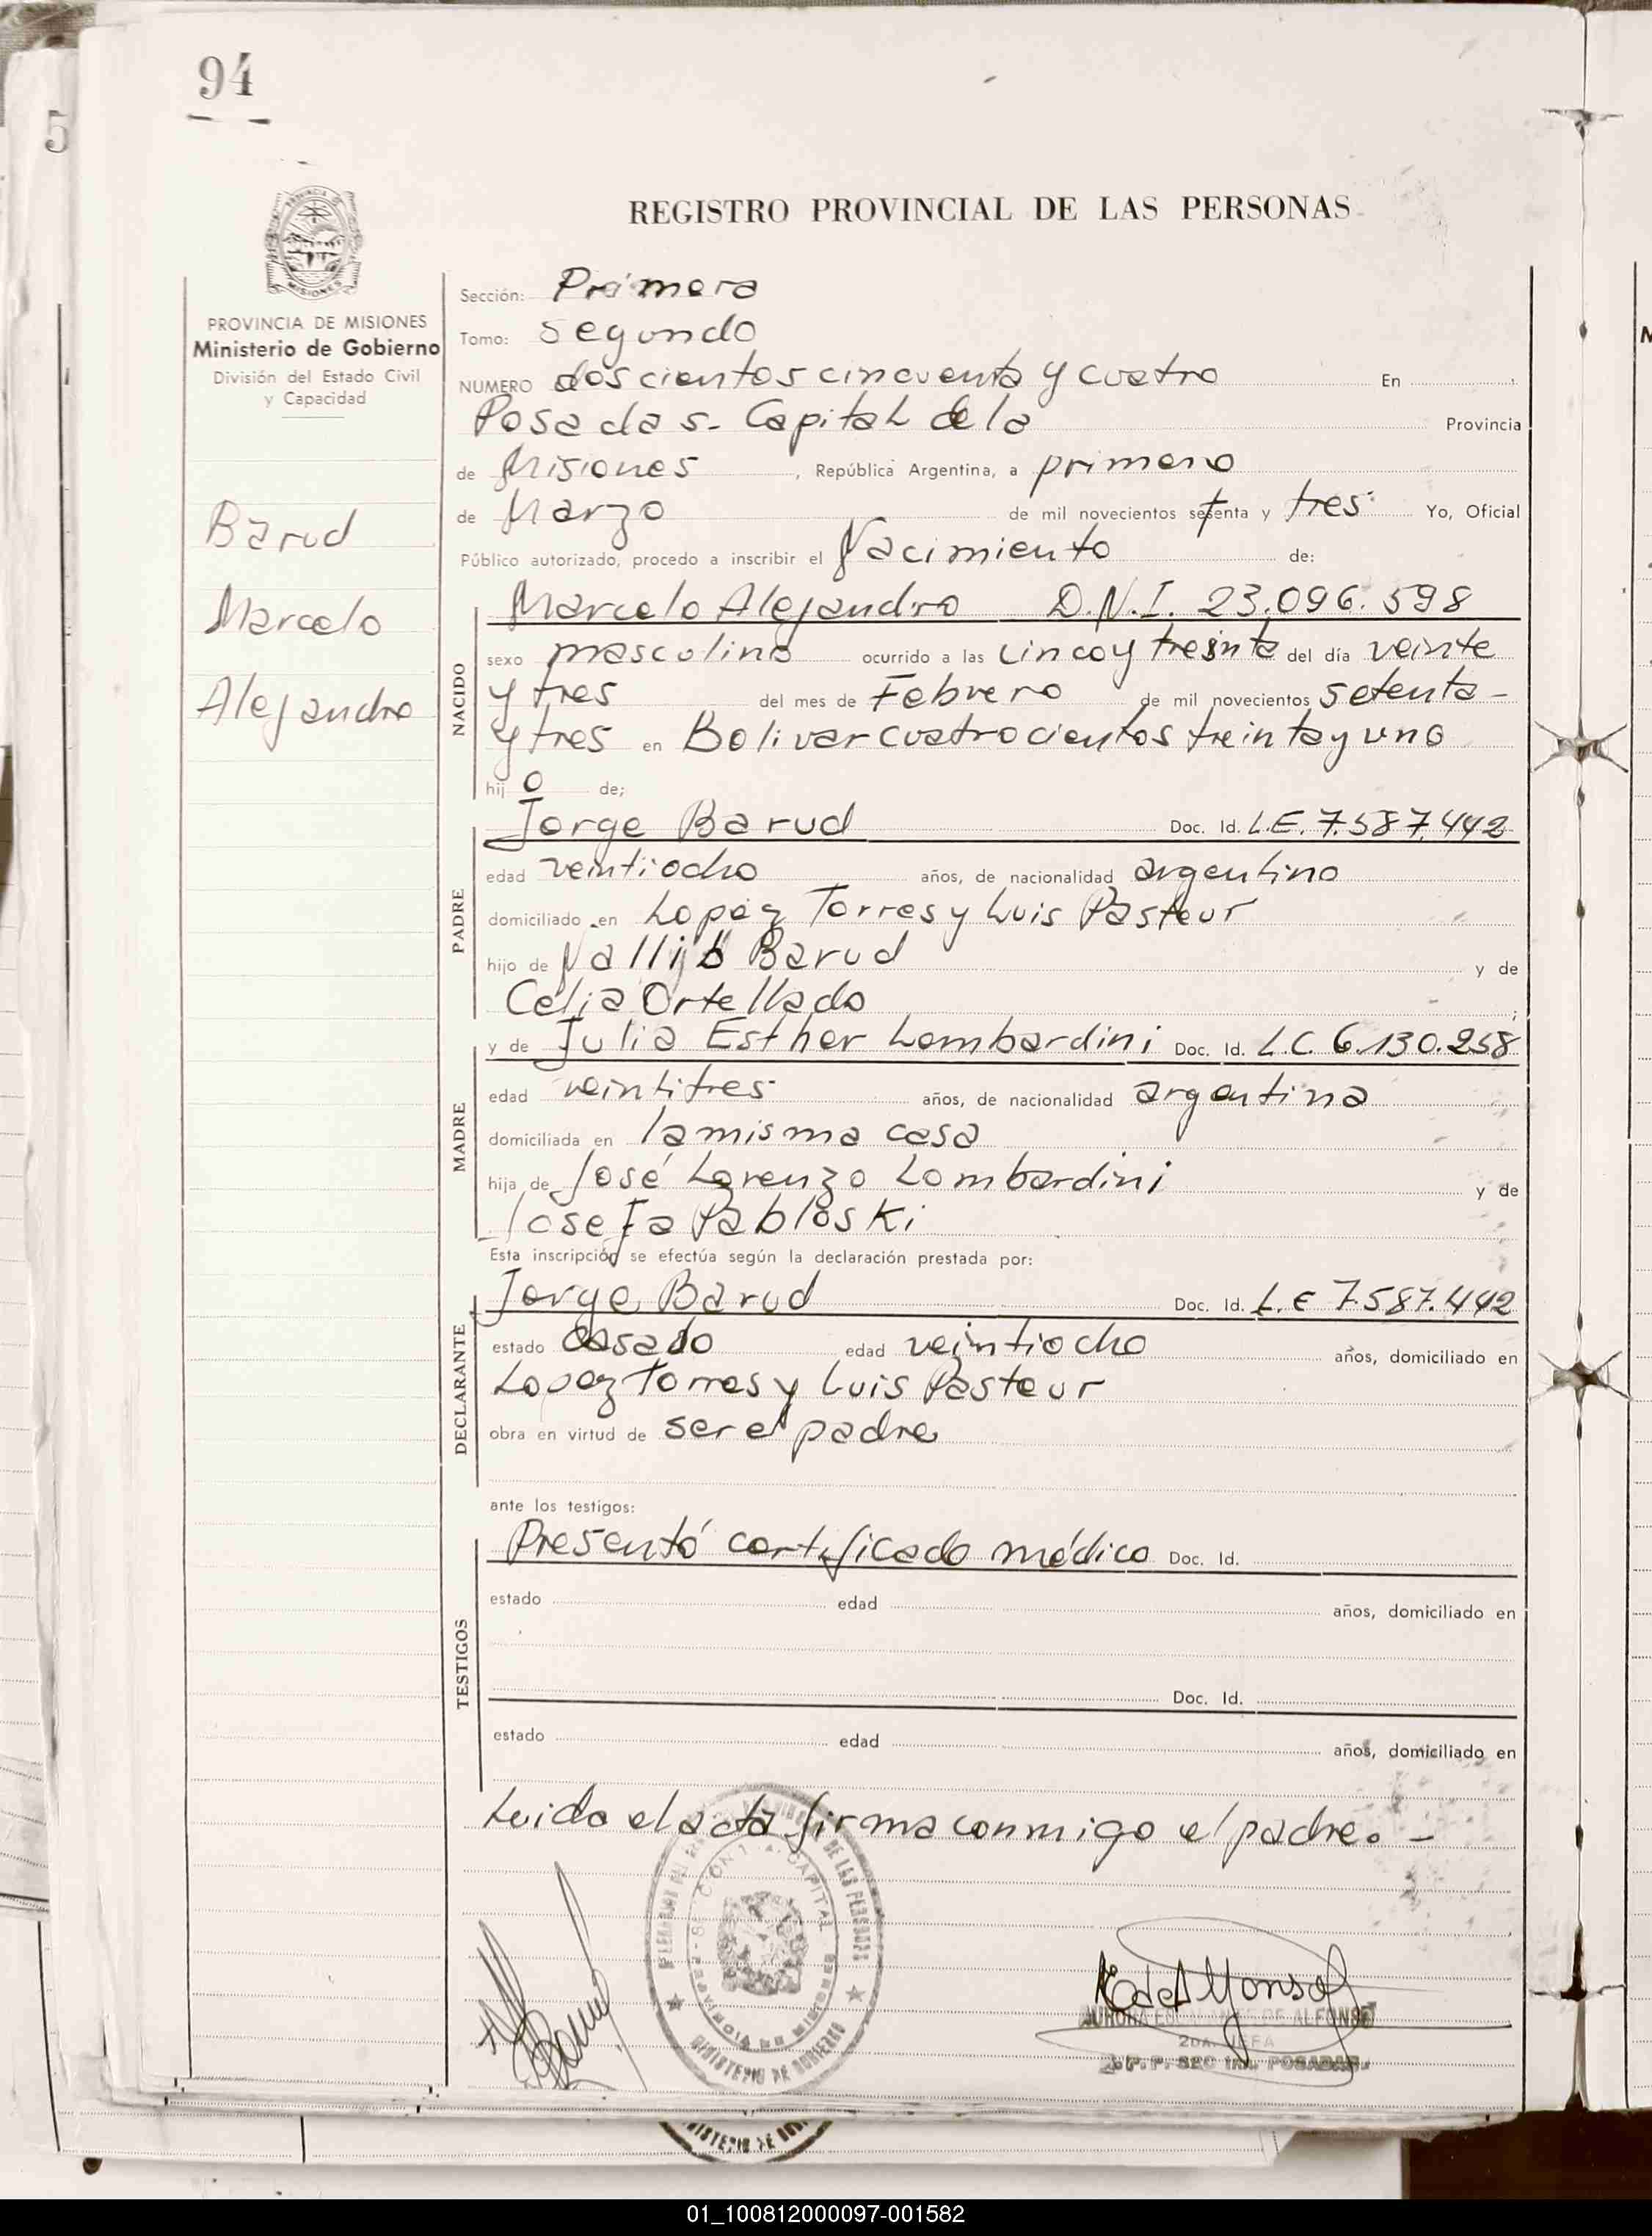 94
5
REGISTRO PROVINCIAL DE LAS PERSONAS
MISIONES
PROVINCIA DE MISIONES
Ministerio de Gobierno
División del Estado Civil
y Capacidad
Barud
Marcelo
Alejandro
Sección: Primera
Tomo: Segundo
NUMERO doscientos cincuenta y cuatro En
Posadas - Capital de la Provincia
de Misiones, República Argentina, a primero
de Marzo de mil novecientos setenta y tres Yo, Oficial
Público autorizado, procedo a inscribir el Nacimiento de:
NACIDO
Marcelo Alejandro D.N.I. 23.096.598
sexo masculino ocurrido a las cinco y treinta del día veinte
y tres del mes de Febrero de mil novecientos setenta -
y tres en Bolivar cuatrocientos treinta y uno
hijo de;
PADRE
Jorge Barud Doc. Id. L.E. 7.587.442
edad veintiocho años, de nacionalidad argentino
domiciliado en Lopez Torres y Luis Pasteur
hijo de Barud y de
Celia Ortellado;
MADRE
y de Julia Esther Lombardini Doc. Id. L.C. 6.130.258
edad veintitres años, de nacionalidad argentina
domiciliada en la misma casa
hija de José Lorenzo Lombardini y de
Josefa Pabloski
Esta inscripción se efectúa según la declaración prestada por:
DECLARANTE
Jorge Barud Doc. Id. L.E 7.587.442
estado casado edad veintiocho años, domiciliado en
Lopez Torres y Luis Pasteur
obra en virtud de ser el padre
ante los testigos:
TESTIGOS
Presentó certificado médico Doc. Id.
estado edad años, domiciliado en
Doc. Id.
estado edad años, domiciliado en
Leida el acta firma conmigo el padre. -
DE LAS PERSONAS
CAPITAL
MINISTERIO DE GOBIERNO
DE ALFONSO
POSADAS
01_100812000097-001582